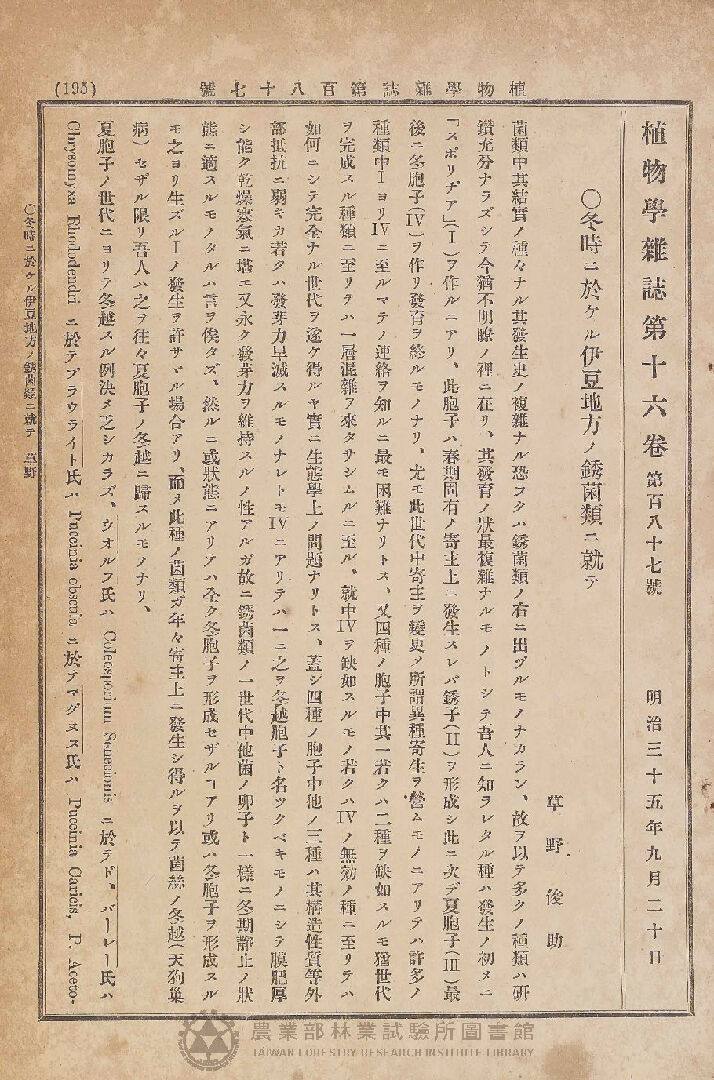 (195)
植物學雜誌第百八十七號
植物學雜誌第十六卷 第百八十七號 明治三十五年九月二十日
〇冬時ニ於ケル伊豆地方ノ銹菌類ニ就テ
草野俊助
菌類中其結實ノ種々ナル其發生史ノ複雜ナル恐ラクハ銹菌類ノ右ニ出ヅルモノナカラン、故ヲ以テ多クノ種類ハ研
鑽充分ナラズシテ今猶不明瞭ノ裡ニ在リ、其發育ノ狀最複雜ナルモノトシテ吾人ニ知ラレタル種ハ發生ノ初メニ
「スポリヂア」(I)ヲ作ルニアリ、此胞子ハ春期固有ノ寄主上ニ發生スレバ銹子(II)ヲ形成シ此ニ次デ夏胞子(III)最
後ニ冬胞子(IV)ヲ作リ發育ヲ終ルモノナリ、尤モ此世代中寄主ヲ變更シ所謂異種寄生ヲ營ムモノニアリテハ許多ノ
種類中IヨリIVニ至ルマテノ連絡ヲ知ルニ最モ困難ナリトス、又四種ノ胞子中其一若クハ二種ヲ缺如スルモ猶世代
ヲ完成スル種類ニ至リテハ一層混雜ヲ來タサシムルニ至ル、就中IVヲ缺如スルモノ若クハIVノ無効ノ種ニ至リテハ
如何ニシテ完全ナル世代ヲ遂ケ得ルヤ實ニ生態學上ノ問題ナリトス、蓋シ四種ノ胞子中他ノ三種ハ其構造性質等外
部抵抗ニ弱キカ若クハ發芽力早減スルモノナレトモIVニアリテハ一ニ之ヲ冬越胞子ト名ツクベキモノニシテ膜肥厚
シ能ク乾燥寒氣ニ堪エ又永ク發芽力ヲ維持スルノ性アルガ故ニ銹菌類ノ一世代中他菌ノ卵子ト一樣ニ冬期靜止ノ狀
態ニ適スルモノタルハ言ヲ俟タズ、然ルニ或狀態ニアリテハ全ク冬胞子ヲ形成セザルヿアリ或ハ冬胞子ヲ形成スル
モ之ヨリ生ズルIノ發生ヲ許サヾル場合アリ、而メ此種ノ菌類ガ年々寄主上ニ發生シ得ルヲ以テ菌絲ノ冬越(天狗巢
病)セザル限リ吾人ハ之ヲ往々夏胞子ノ冬越ニ歸スルモノナリ、
夏胞子ノ世代ニヨリテ冬越スル例決メ乏シカラズ、ウオルフ氏ハ Coleosporium Senecionis ニ於テド、バーレー氏ハ
Chrysomyxa Rhododendri ニ於テプラウライト氏ハ Puccinia obscura ニ於テマグヌス氏ハ Puccinia Caricis, P. Aceto-
〇冬時ニ於ケル伊豆地方ノ銹菌類ニ就テ 草野
農業部林業試驗所圖書館
TAIWAN FORESTRY RESEARCH INSTITUTE LIBRARY